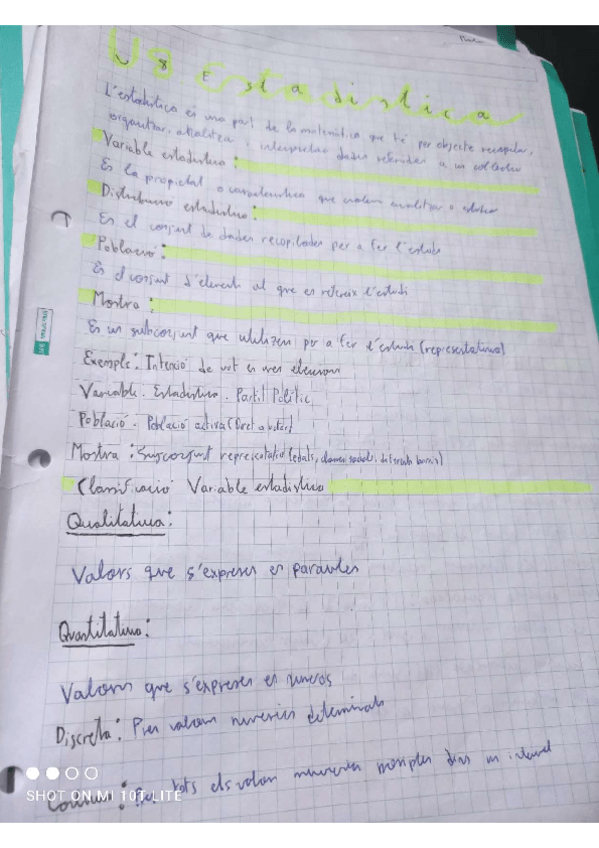 U8. Estadistica
L'estadistica es una part de la matematica que té per objecte recopilar,
organitzar, analitza i interpretar dades referides a un col·lectiu
Variable estadistica:
Es la propietat o caracteristica que volem analitzar o estudiar
Distribucio estadistica:
Es el conjunt de dades recopilades per a fer l'estudi
Població:
Es el conjunt d'elements al que es refereix l'estudi
Mostra:
Es un subconjunt que utilitzem per a fer l'estudi (representatiu)
Exemple: Intenció de vot en unes eleccions
Variable Estadistica: Partit Politic
Població: Població activa (Dret a votar)
Mostra: Subconjunt representatiu (edats, classes socials, diferents barris)
Clasificació Variable estadistica
Qualitativa:
Valors que s'expresen en paraules
Quantitativa:
Valors que s'expresen en numeros
Discreta: Pren valors numerics determinats
tots els valors numerics possibles dins un interval
SHOT ON MI 10T LITE